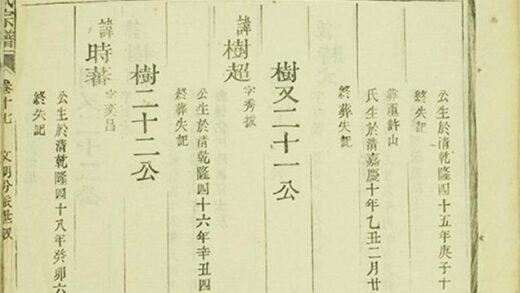 公生於清乾隆四十五年庚子十
終失記
葬重許山
氏生於清嘉慶十年乙丑二月廿
終葬失記
樹又二十一公
諱樹超字秀拔
公生於清乾隆四十六年辛丑四
終葬失記
樹二十二公
諱時蕃字奕昌
公生於清乾隆四十八年癸卯六
終失記
宗譜 卷十七 文朗分派世叙